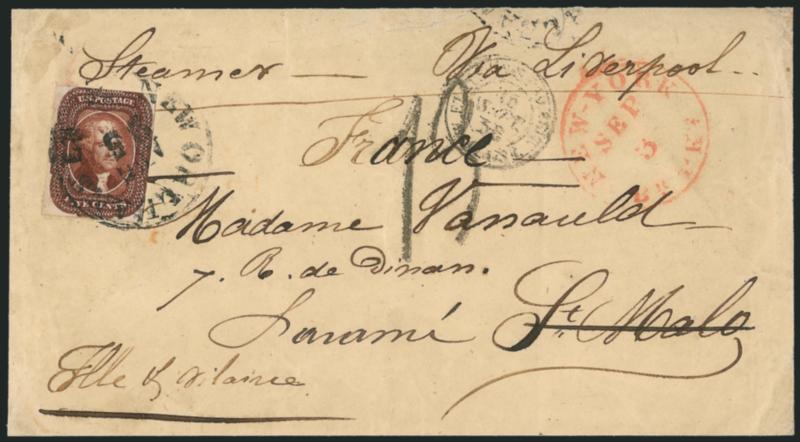 Steamer — Via Liverpool..
U.S. POSTAGE
FIVE CENTS
NEW ORLE
NEW-YORK
SEP
3
BR. PKT
France
Madame Vanauld
7. R. de Dinan.
Paramé St. Malo
Ille & vilaine